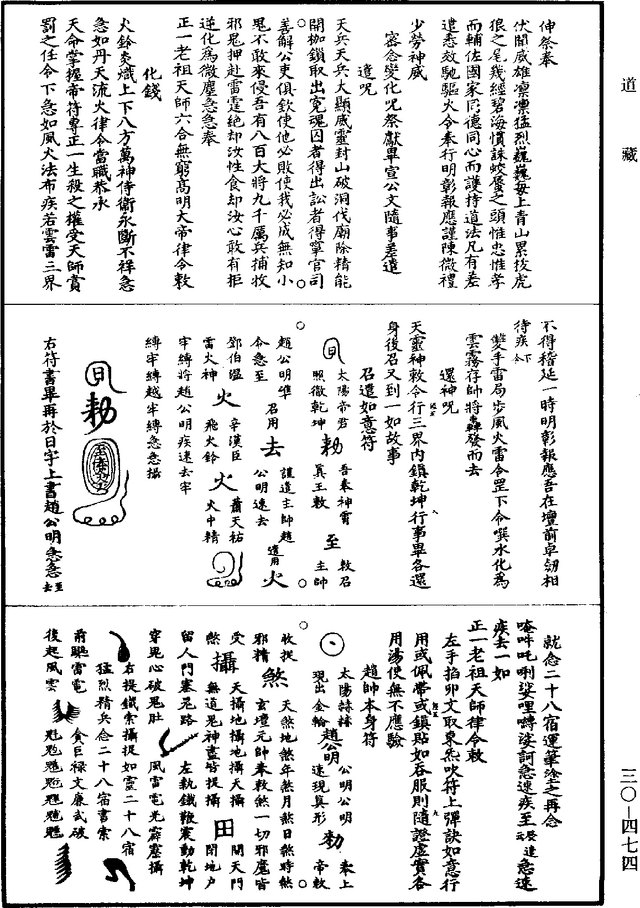 道藏
三〇—四七四
伸祭奉
伏聞威雄凛凛猛烈巍巍每上青山累拔虎
狼之尾幾經碧海慣誅蛟蜃之頭惟忠惟孝
而輔佐國家同德同心而護持道法凡有差
遣悉效馳驅火令奉行明彰報應謹陳微禮
少勞神威
密念變化呪祭獻畢宣公文隨事差遣
遣呪
天兵天兵大顯威靈封山破洞伐廟除精能
開枷鎖取出冤魂囚者得出訟者得寧官司
善解公吏俱欽使他必敗使我必成無知小
鬼不敢來侵吾有八百大將九千厲兵捕收
邪鬼押赴雷霆絶却汝性食却汝心敢有拒
逆化為微塵急急奉
正一老祖天師六合無窮高明大帝律令敕
化錢
火鈴炎熾上下八方萬神侍衛永斷不祥急
急如丹天流火律令當職恭承
天命掌握帝符專正一生殺之權受天師賞
罰之任令下急如風火法布疾若雲雷三界
不得稽延一時明彰報應吾在壇前卓劒相
待疾下
雙手雷局步風火雷令罡下令噀水化為
雲霧存帥將轟發而去
還神呪
天靈神敕令行三界内鎮乾坤行事畢各還
身後召又到一如故事
召遣如意符
太陽帝君
照徹乾坤
敕
吾奉神霄
真王敕
至
敕召
主帥
趙公明準
令急至
召用
去
謹遣主帥趙
公明速去
遣用
火
鄧伯温
雷火神
火
辛漢臣
飛火鈴
火
蕭天祐
火中精
牢縛將趙公明疾速去牢
縛牢縛越牢縛急急攝
右符書畢再於日字上書趙公明急急至去
就念二十八宿運筆塗之再念
唵吽吒唎娑哩嚩娑訶急速疾至
疾去一如
正一老祖天師律令敕
左手掐卯文取東炁吹符上彈訣如意行
用或佩帶或鎮貼如吞服則隨證虛實各
用湯使無不應驗
趙帥本身符
太陽赫赫
現出金輪
趙公明
公明公明
速現真形
敕
奉上
帝敕
收捉
邪精
煞
天煞地煞年煞月煞日煞時煞
玄壇元帥奉敕煞一切邪魔皆
受
煞
攝
天攝地攝地攝天攝
無道鬼神盡皆捉攝
田
開天門
閉地户
留人門塞鬼路
左執鐵鞭震動乾坤
穿鬼心破鬼肚
風雷電光霹靂攝
右提鐵索攝捉如靈二十八宿
猛烈精兵念二十八宿書索
前驅雷電
後起風雲
貪巨禄文廉武破